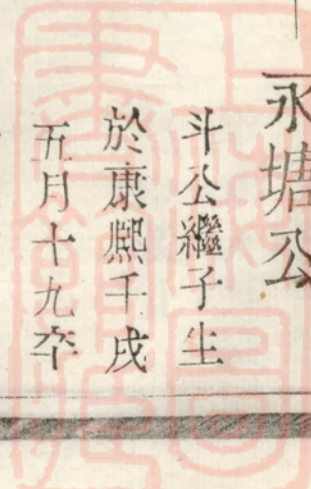 永塘公
斗公繼子生
於康熙壬戌
五月十九卒